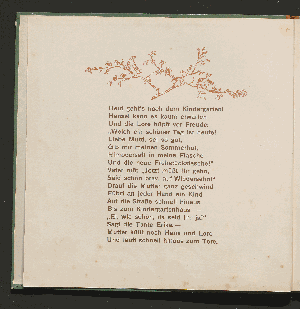 Heut geht's nach dem Kindergarten!
Hansel kann es kaum erwarten
Und die Lore hüpft vor Freude:
„Welch ein schöner Tag ist heute!
Liebe Mutti, sei so gut,
Gib mir meinen Sommerhut,
Himbeersaft in meine Flasche
Und die neue Frühstückstasche!“
Vater ruft: „Jetzt müßt ihr gehn,
Seid schön brav a
Drauf die Mutter ganz geschwind
Führt an jeder Hand ein Kind
Auf die Straße schnell hinaus
Bis zum Kindergartenhaus.
„Ei, wie schön, da seid ihr ja!“
Sagt die Tante
Mutter küßt noch Hans und Lore
Und läuft schnell hinaus zum Tore.